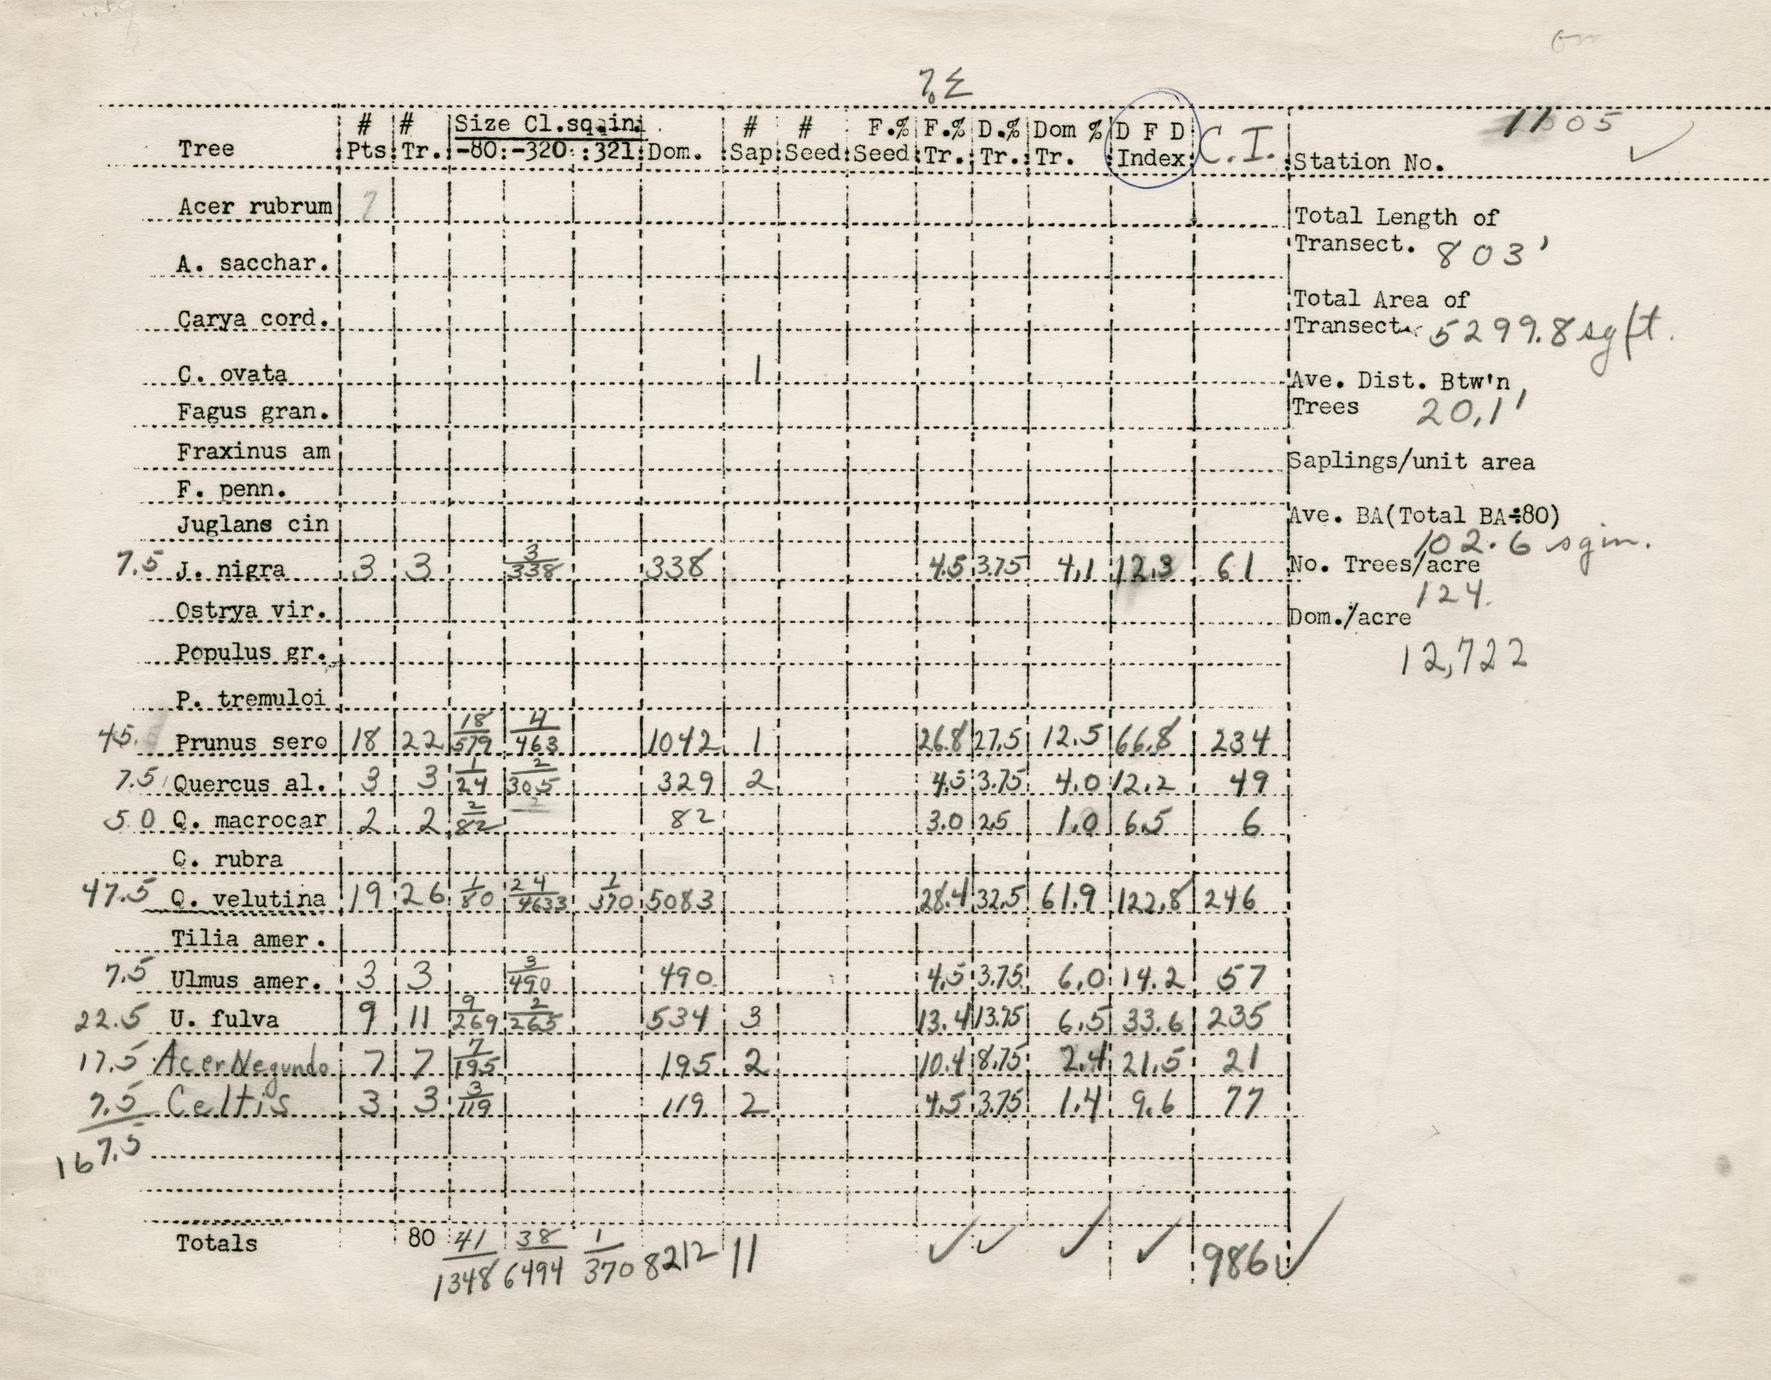 % Σ
# # Size Cl.sq.in. # # F.% F.% D.% Dom % D F D C.I. 1105
Tree Pts. Tr. -80 -320 321 Dom. Sap. Seed Seed Tr. Tr. Tr. Index Station No.
Acer rubrum 7
Total Length of
Transect. 803'
A. sacchar.
Total Area of
Carya cord. Transect 5299.8 sq ft.
C. ovata 1
Ave. Dist. Btw'n
Fagus gran. Trees 20.1'
Fraxinus am Saplings/unit area
F. penn.
Juglans cin Ave. BA(Total BA÷80)
102.6 sq in.
7.5 J. nigra 3 3 3/338 338 4.5 3.75 4.1 12.3 61 No. Trees/acre
124.
Ostrya vir. Dom./acre
Populus gr. 12,722
P. tremuloi
45. Prunus sero 18 22 18/579 4/463 1042 1 26.8 27.5 12.5 66.8 234
7.5 Quercus al. 3 3 1/24 2/305 329 2 4.5 3.75 4.0 12.2 49
5.0 Q. macrocar 2 2 2/82 82 3.0 2.5 1.0 6.5 6
Q. rubra
47.5 Q. velutina 19 26 1/80 24/4633 1/370 5083 28.4 32.5 61.9 122.8 246
Tilia amer.
7.5 Ulmus amer. 3 3 3/490 490 4.5 3.75 6.0 14.2 57
22.5 U. fulva 9 11 9/269 2/265 534 3 13.4 13.75 6.5 33.6 235
17.5 Acer Negundo 7 7 7/195 195 2 10.4 8.75 2.4 21.5 21
7.5 Celtis 3 3 3/119 119 2 4.5 3.75 1.4 9.6 77
167.5
Totals 80 41/1348 38/6494 1/370 8212 11 ✓ ✓ ✓ ✓ 986 ✓